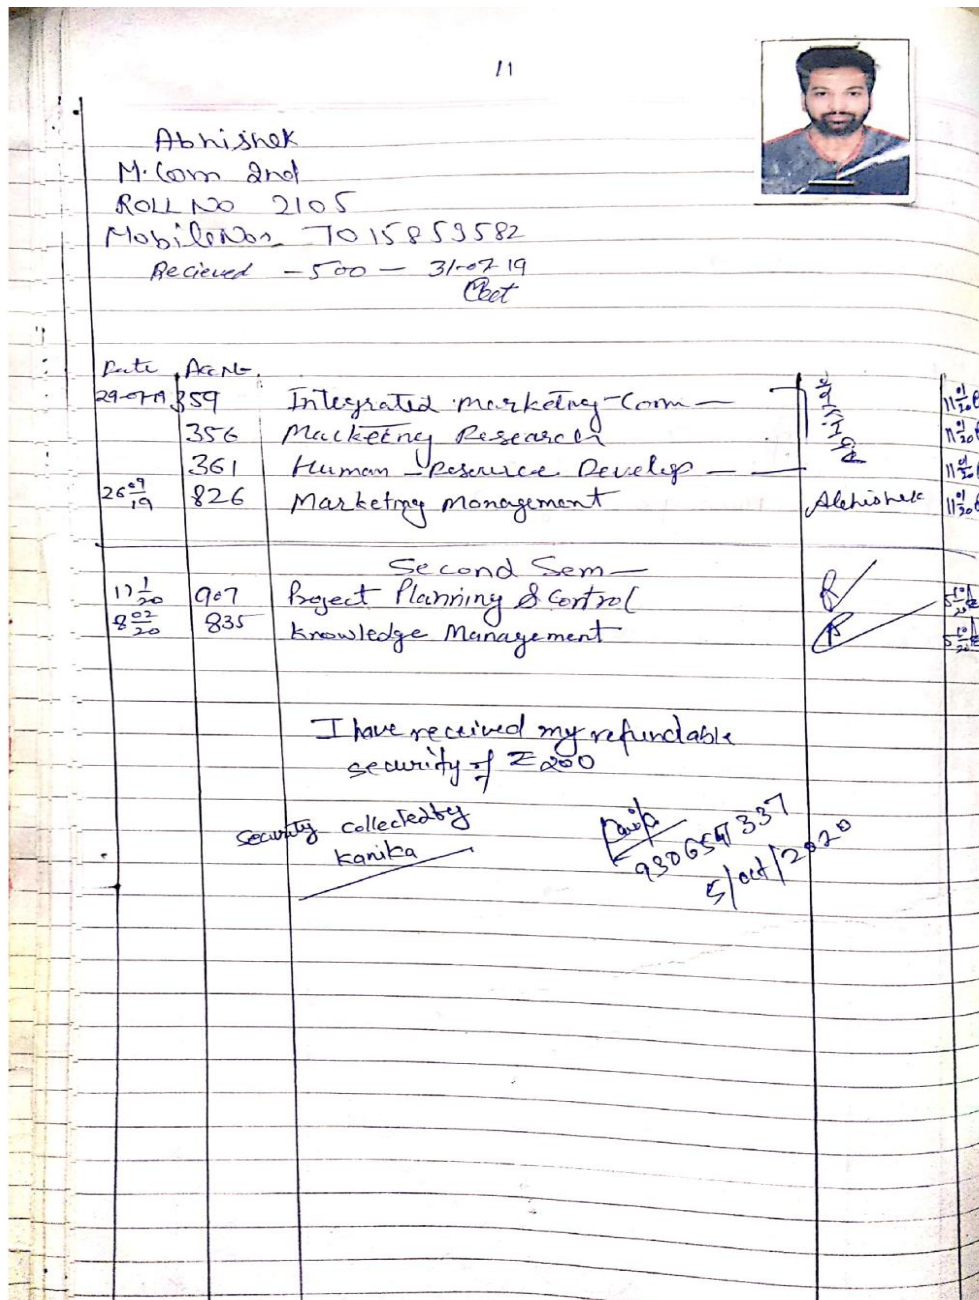 11
Abhishek
M.Com 2nd
ROLL NO 2105
Mobile Nos 7015853582
Recieved -500- 31-07-19
Date Acc No.
29-07-19 359 Integrated marketing Comm — Abhishek 11 01/20
356 Marketing Research 11 01/20
361 Human Resource Develop — 11 01/20
26 09/19 826 Marketing Management Abhishek 11 01/20
Second Sem—
17 1/20 907 Project Planning & Control 5 10/20
8 02/20 835 Knowledge Management 5 10/20
I have received my refundable
security of ₹200
Security collected by
Kanika
5/oct/2020